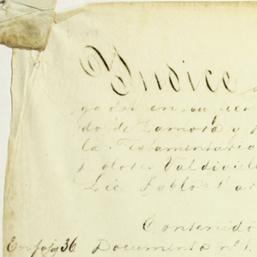 Yndice
do de Zamora y
la Testamentaria
Dolores Valdivie
Lic. Pablo
Contenido
En foja 36 Documento nº 1.